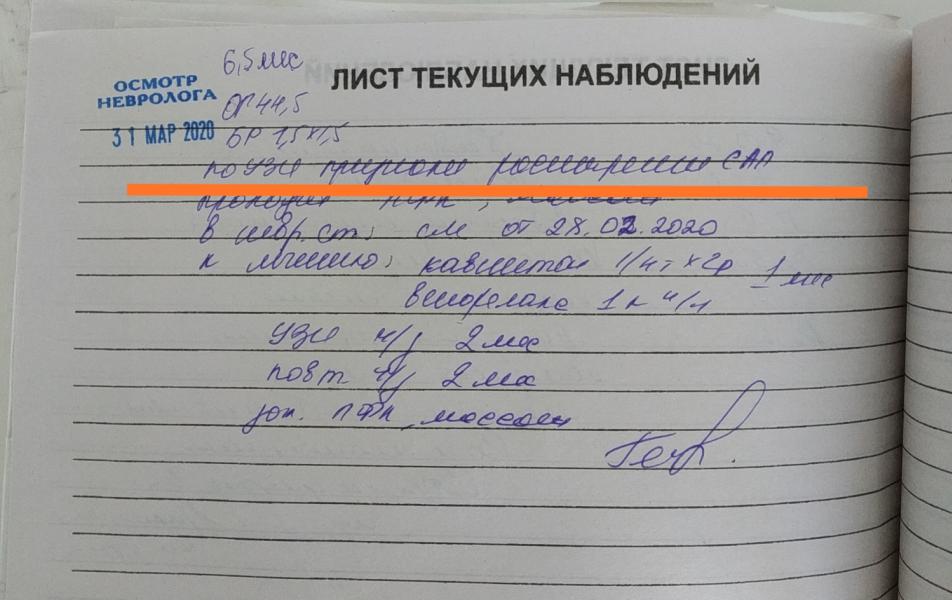 6,5 мес
ЛИСТ ТЕКУЩИХ НАБЛЮДЕНИЙ
ОСМОТР
НЕВРОЛОГА
ОГ 44,5
31 МАР 2020
БР 1,5х1,5
по УЗИ признаки расширения САП
в невр. ст: см от 28.02.2020
к лечению: кавинтон 1/4 т х 2р 1 мес
1 к н/н
УЗИ ч/з 2 мес
повт ч/з 2 мес
ЛФК, массаж